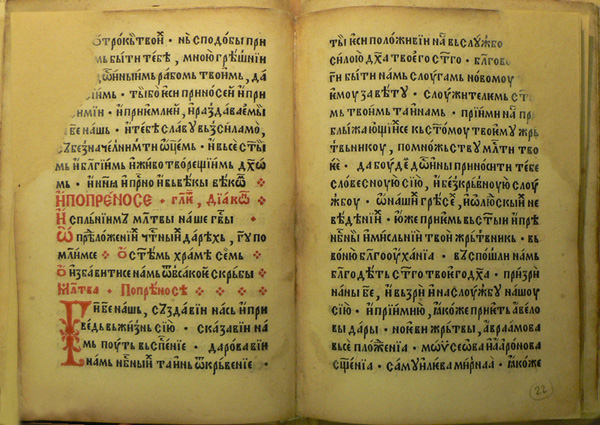 отрокьтвои · нѣсподобы при
мь быти тебѣ, мною грѣшній
мь быти
ть · тыбоѥси приносеи ипри
ѥмлѥи, ираздаваемы
бе нашь · итебѣ славу възсилаѥмо,
събезначелнимти ѿцемь · ивьсесты
мь иблгіимь иживотворещіимь дх҃о
мь · инн҃ꙗ ипр҃но ивьвѣкы вѣкѡ
ипопреносе · гл҃и, дїакѡ
Исплънимъ млтвы наше гв҃ы
Ѡ прѣложеній чтныи дарехь, гу по
млимсе · О стѣмь храмѣ семь
О избавитисе намь ѿвсакои скрьбы
Млтва · Попреносѣ
Ги бе нашь, създавіи нась ипри
ведь вьжизнь сію · сказавіи на
мь поуть вьспсеніе · дарова віи
намь нбныи таинь ѿкрьвеніе ·
ты ѥси положивіи на вьслужбо
силою дх҃а твоего ст҃го · блгово
ги быти намь слоугамь новомоу
ти моу завѣту · слоужителемь ст
мь твоимь таинамь · пріими на пр
ближающіисе кьстомоу твоему жрь
твьникоу, помножьству млти твоѥ
ѥ · да боудемь дои҃ны приносити тебе
словесноую сію, и безкрьвноую слоу
жбоу · ѡнаши грѣсе, и ѡлюскы не
вѣдѣніи · юже приемь въстыи ипрѣ
нбны имисльніи твои жрьтвникь · вь
вонїю блгооуханїа · въспошли намь
блгодѣть стго твоего дх҃а · призри
наны бе, и възри насл҃оужбу нашоу
сію · ипріимію, ꙗкоже приеть авело
вы дары · ноиви жрьтвы, аврамова
все пложенїа · мѡѵсеѡва и ааронова
сщенїа · самуилева мирнаа · ꙗкоже
22